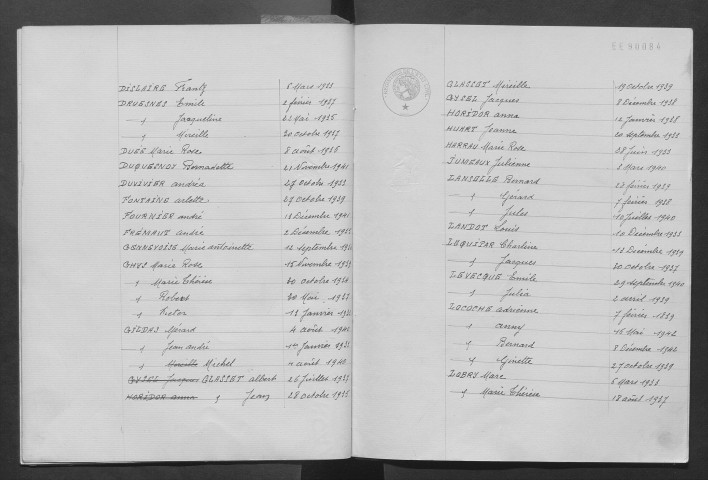 DISLAIRE Frantz 5 Mars 1933
DRUESNES Emile 2 février 1937
" Jacqueline 22 Mai 1935
" Mireille 20 octobre 1937
DUEZ Marie Rose 8 août 1935
DUQUESNOY Bernadette 21 Novembre 1941
DUVIVIER andréa 27 octobre 1933
FONTAINE arlette 27 octobre 1939
FOURNIER andré 18 Décembre 1941
FRÉMAUT andré 2 Décembre
GENNEVOISE Marie antoinette 12 septembre
GHYS Marie Rose 15 Novembre
" Marie Thérèse 20 octobre
" Robert 20 Mai
" Victor 13 Janvier
GILDAS Gérard 4 août
" Jean andré 1er Janvier
" Mireille Michel août 1940
GYSEL Jacques GLASSET albert 25 Juillet
HORÉDOR anna " Jean 28 octobre
EE90084
GLASSET Mireille 19 octobre 1939
GYSEL Jacques 8 Décembre 1938
HORÉDOR anna 12 Janvier 1938
HUART Jeanne 20 septembre 1933
HARRAU Marie Rose 28 Juin 1933
JUMEAUX Julienne 2 Mars 1940
LANSELLE Bernard 23 février 1939
" Gérard 7 février 1938
" Jules 10 Juillet 1940
LANDOT Louis 10 Décembre 1933
LEQUIZAR Charline 13 Décembre 1939
" Jacques 20 octobre 1937
LEVECQUE Emile 29 septembre 1940
" Julia 2 avril 1939
LOCOCHE adrienne 7 février 1939
" anny 15 Mai 1942
" Bernard 8 Décembre 1942
" Ginette 27 octobre 1939
LOBRY Marc 5 Mars 1933
" Marie Thérèse 18 août 1937